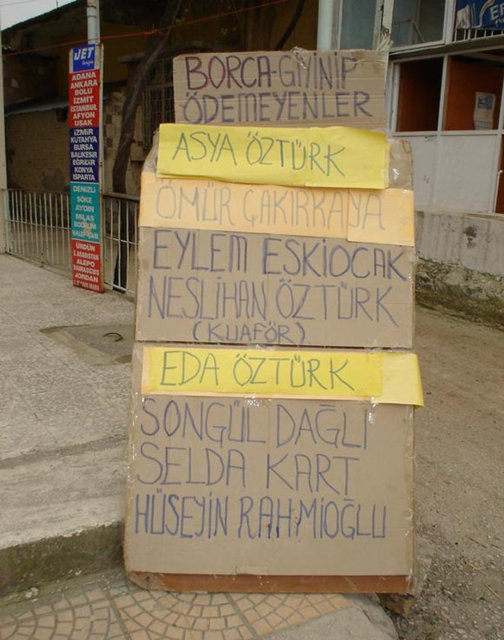 BORCA-GİYİNİP
ÖDEMEYENLER
ASYA ÖZTÜRK
ÖMÜR ÇAKIRKAYA
EYLEM ESKİOCAK
NESLİHAN ÖZTÜRK
(KUAFÖR)
EDA ÖZTÜRK
SONGÜL DAĞLI
SELDA KART
HÜSEYİN RAHMİOĞLU
JET
ADANA
ANKARA
BOLU
İZMİT
İSTANBUL
AFYON
UŞAK
İZMİR
KÜTAHYA
BURSA
BALIKESİR
EĞİRDİR
KONYA
ISPARTA
DENİZLİ
SÖKE
AYDIN
MİLAS
BODRUM
ÜRDÜN
ALEPO
DAMASCUS
JORDAN